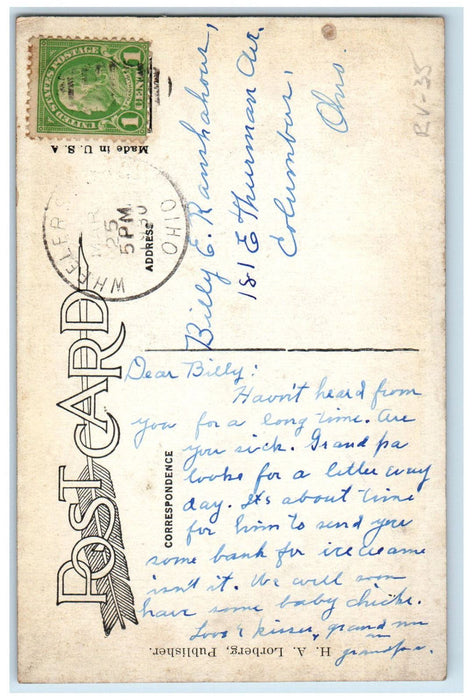 POST CARD
CORRESPONDENCE
Dear Billy:
Havn't heard from
you for a long time. Are
you sick. Grand pa
looks for a letter every
day. Its about time
for him to send you
some bank for icecreame
isn't it. We will soon
have some baby chicks.
Love & kisses, grand ma
grandpa.
H. A. Lorberg, Publisher.
ADDRESS
Billy E. Ramhahour,
181 E Thurman Ave.
Columbus,
Ohio.
UNITED STATES POSTAGE
1 CENT 1
Made in U. S. A
WHEELERS
MAR
25
5 PM
1930
OHIO
RV-35